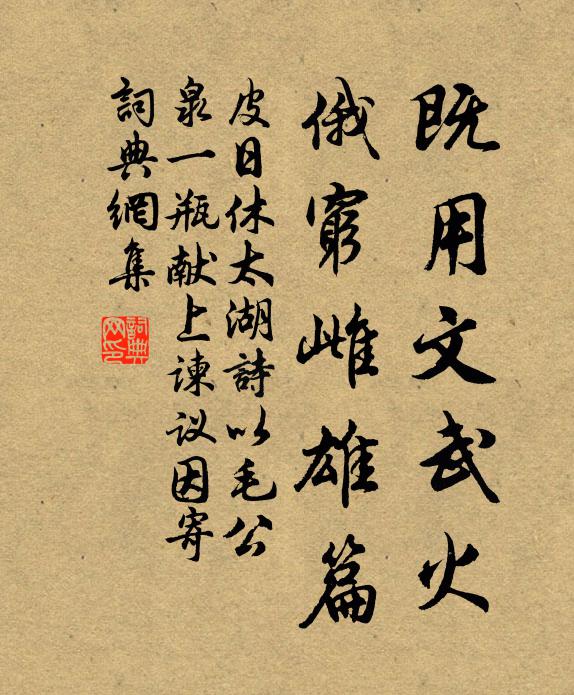 既用文武火
俄窮雌雄篇
皮日休太湖詩以毛公
泉一瓶献上谏议因寄
詞典網集
詞典网印